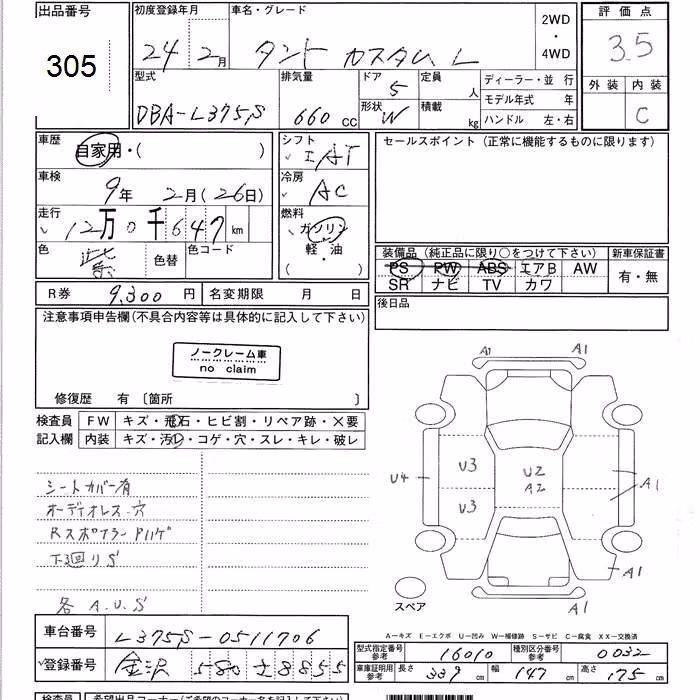 出品番号 305
初度登録年月 24年 2月
車名・グレード タント カスタム L
2WD・4WD
評価点 3.5
外装 内装 C
型式 DBA-L375S
排気量 660 CC
ドア 5
形状 W
定員 人
積載 kg
ディーラー・並行
モデル年式 年
ハンドル 左・右
車歴 自家用・( )
シフト IAT
セールスポイント (正常に機能するものに限ります)
車検 9年 2月(26日)
冷房 AC
走行 12万0千647km
燃料 ガソリン 軽・油 ( )
色 紫 色替 色コード
装備品 (純正品に限り○をつけて下さい) 新車保証書
PS PW ABS エアB AW 有・無
SR ナビ TV カワ
R券 9,300円 名変期限 月 日
後日品
注意事項申告欄(不具合内容等は具体的に記入して下さい)
ノークレーム車
no claim
修復歴 有 〔箇所 〕
検査員 FW キズ・飛石・ヒビ割・リペア跡・×要
記入欄 内装 キズ・汚れ・コゲ・穴・スレ・キレ・破レ
A1 A1
U4 U3 U2 A2 U3 A1
A1
シートカバー有
オーディオレス・穴
RスポイラーPハゲ
下回りS
各 A.U.S
スペア
A-キズ E-エクボ U-凹み W-補修跡 S-サビ C-腐食 XX-交換済
車台番号 L375S-0511706
型式指定番号 参考 16010 種別区分番号 参考 0032
登録番号 金沢 580 さ 8855
車庫証明用 参考 長さ 339 cm 幅 147 cm 高さ 175 cm
検査員 希望出品コーナー(ご希望のコーナー名をご